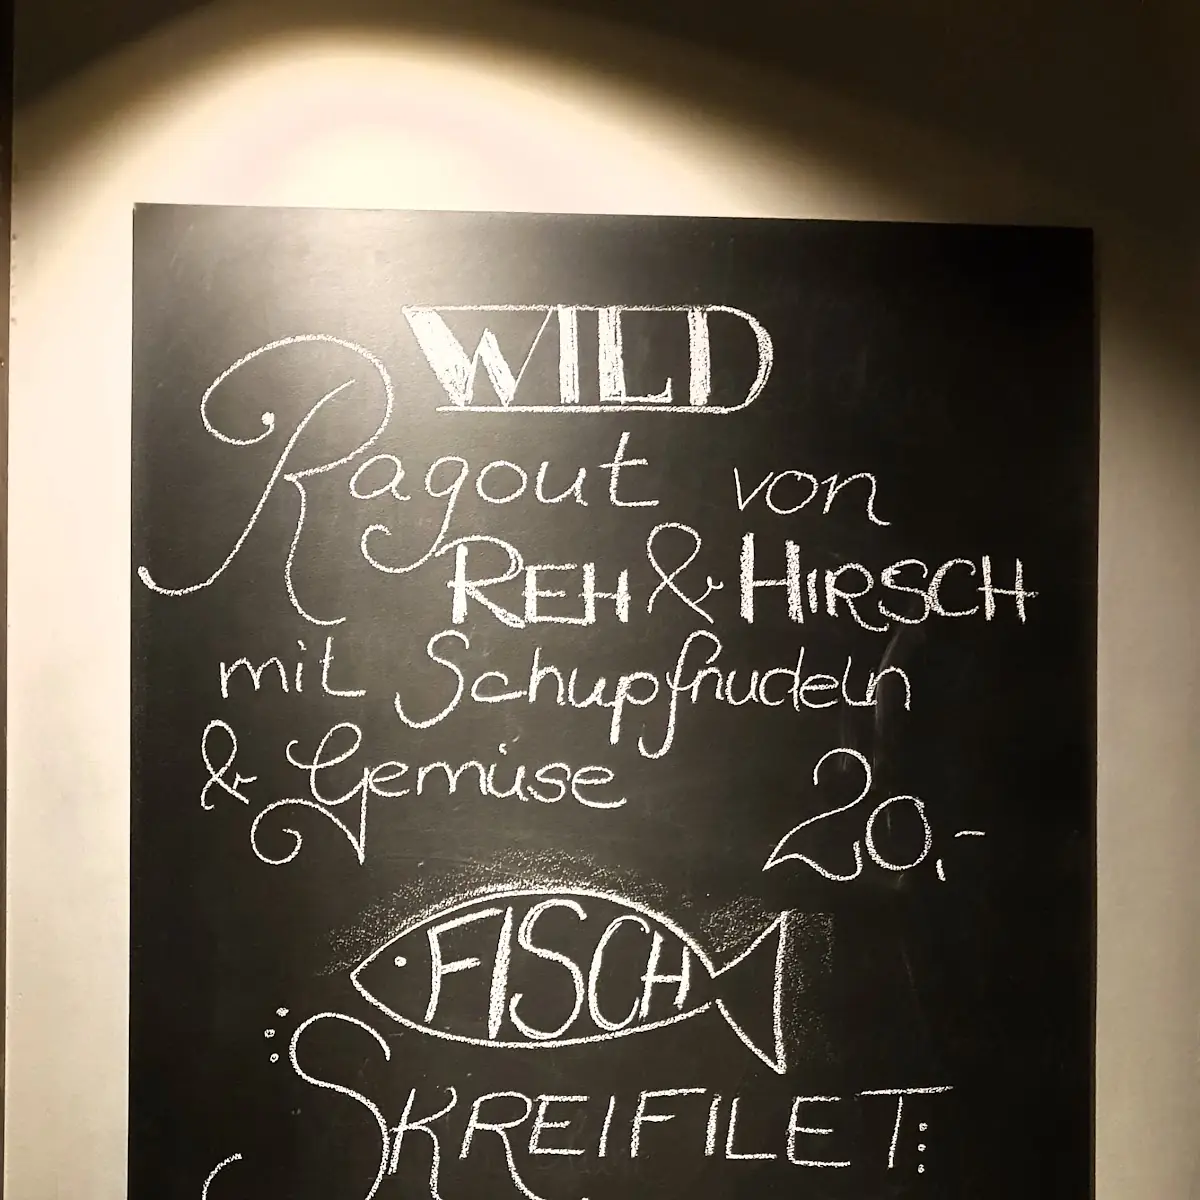 WILD
Ragout von
REH & HIRSCH
mit Schupfnudeln
& Gemüse 20,-
FISCH
SKREIFILET